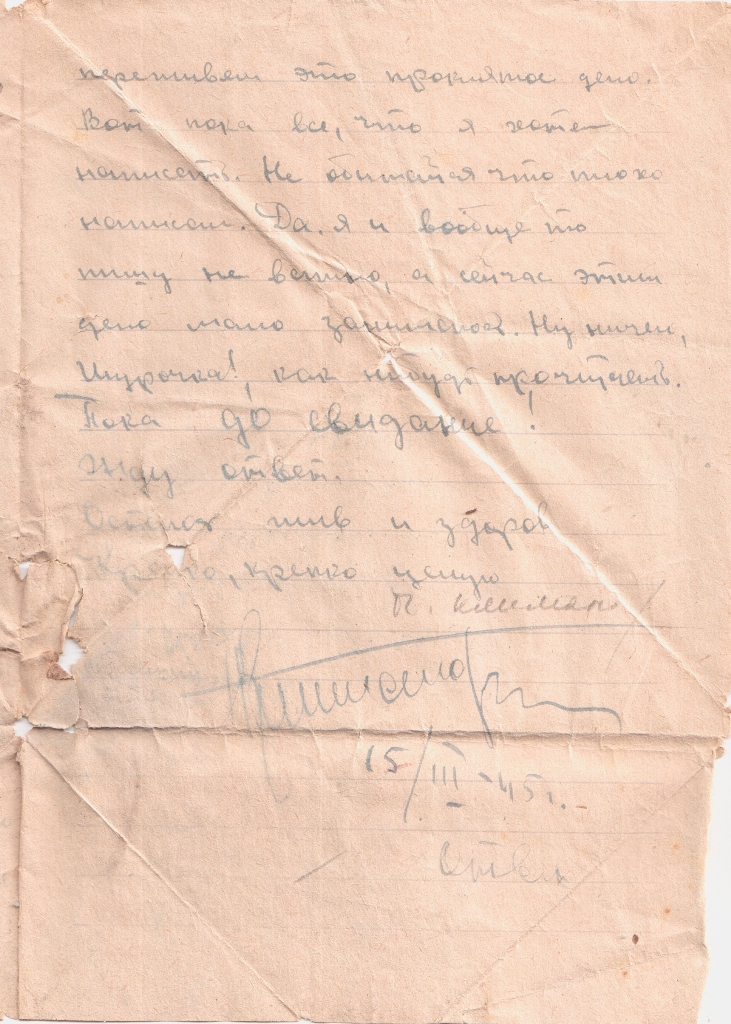 переживем это проклятое дело.
Вот пока все, что я хотел
написать. Не обижайся что плохо
написал. Да, я и вообще то
пишу не важно, а сейчас этим
дело мало занимаюсь. Ну ничего,
Шурочка!, как нибудь прочитаешь.
Пока до свидание!
Жду ответ.
Остаюсь жив и здоров
Крепко, крепко целую
П.
15/III-45 г.
Ответ